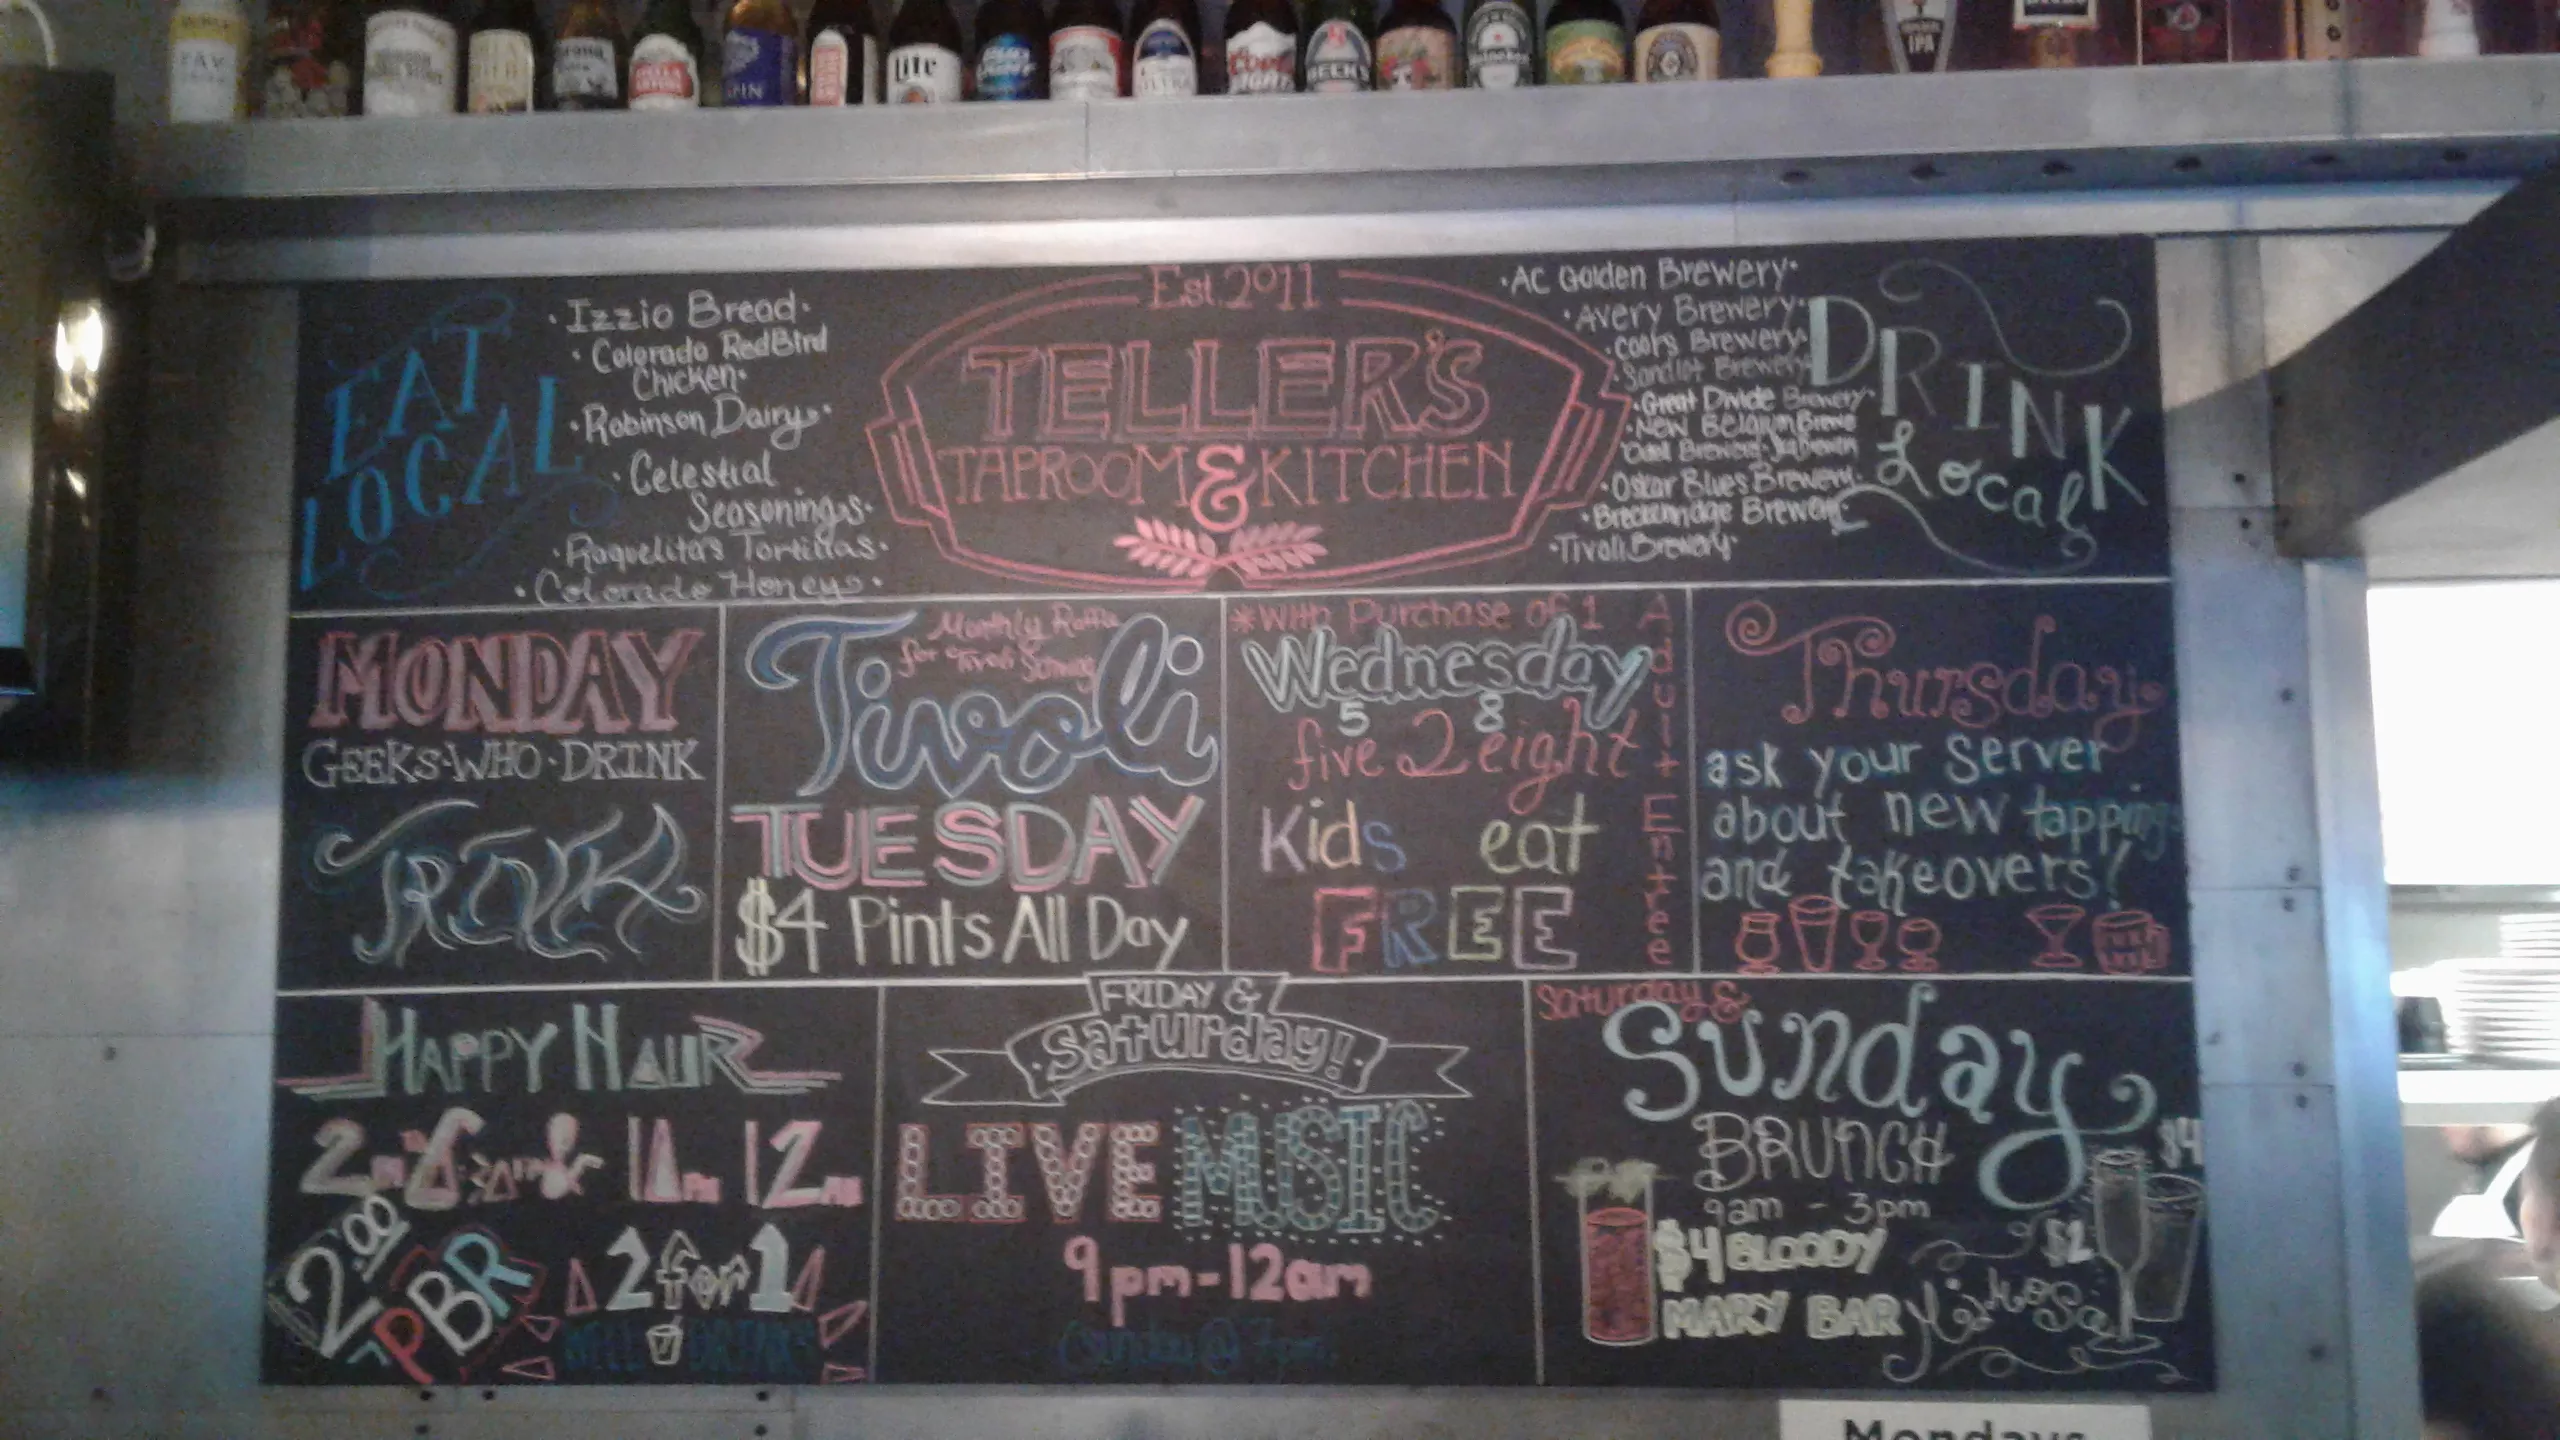 Lite
COORS LIGHT
BECK'S
Heineken
IPA
EAT
LOCAL
·Izzio Bread·
·Colorado RedBird
Chicken·
·Robinson Dairy·
·Celestial
Seasonings·
·Raquelita's Tortillas·
·Colorado Honey·
Est. 2011
TELLER'S
TAPROOM & KITCHEN
·AC Golden Brewery·
·Avery Brewery·
·Coors Brewery·
·Sandlot Brewery·
·Great Divide Brewery·
·New Belgium
·Oskar Blues Brewery·
·Breckenridge Brewery·
·Tivoli Brewery·
DRINK
Local
MONDAY
GEEKS·WHO·DRINK
Monthly Raffle
for Tivoli
Tivoli
TUESDAY
$4 Pints All Day
*With Purchase of 1
Adult Entree
Wednesday
5 8
five 2 eight
Kids eat
FREE
Thursday
ask your server
about new tappings
and takeovers!
HAPPY HOUR
2.00
PBR
2 for 1
FRIDAY &
Saturday!
LIVE MUSIC
9pm-12am
Saturday &
Sunday
BRUNCH
9am - 3pm
$4 BLOODY
MARY BAR
$2
Mimosa
$4
Mondays